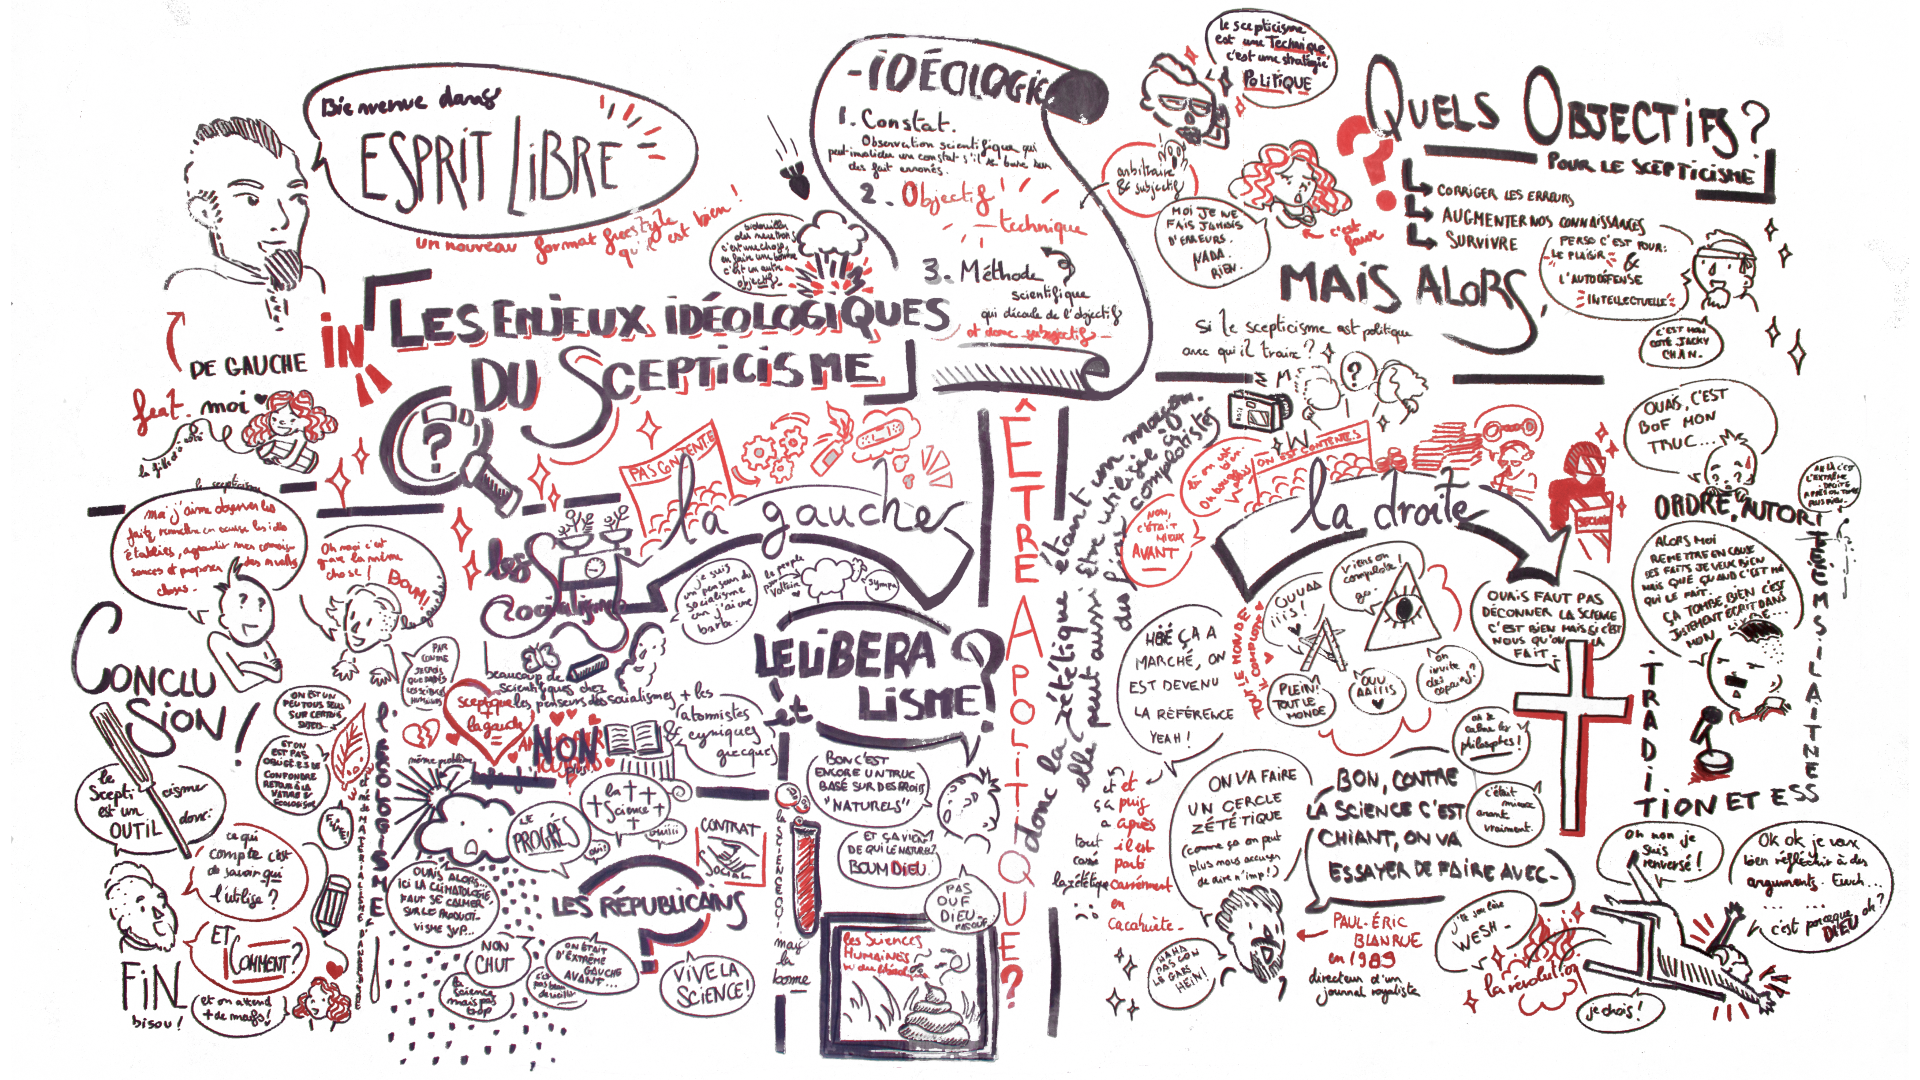 Bienvenue dans
ESPRIT LIBRE
un nouveau format freestyle
qu'il est bien !
DE GAUCHE
IN
feat. moi
LES ENJEUX IDÉOLOGIQUES
DU SCEPTICISME
bidouiller
des neutrons
c'est une chose,
en faire une bombe
c'est un autre
objectif
- IDÉOLOGIE
1. Constat.
Observation scientifique qui
peut invalider un constat s'il se base sur
des fait erronés.
2. Objectif
technique
3. Méthode
scientifique
qui découle de l'objectif
et donc subjectif
arbitraire
& subjectif
le scepticisme
est une Technique,
c'est une stratégie
POLITIQUE
MOI JE NE
FAIS JAMAIS
D'ERREURS.
NADA.
RIEN.
c'est
faux
QUELS OBJECTIFS ?
POUR LE SCEPTICISME
CORRIGER LES ERREURS
AUGMENTER NOS CONNAISSANCES
SURVIVRE
PERSO C'EST POUR:
LE PLAISIR
&
L'AUTODÉFENSE
INTELLECTUELLE
C'EST MON
COTÉ JACKY
CHAN.
MAIS ALORS,
si le scepticisme est politique
avec qui il traine ?
ÊTRE APOLITIQUE ?
donc la zététique étant un magasin
elle peut aussi être utilisée
des fins complotistes
PAS CONTENT.E
la gauche
les
socialismes
je suis
un penseur du
socialisme
car j'ai une
barbe.
le peuple
Voltaire
sympa
beaucoup de
scientifiques chez
les penseurs des socialismes
+ les
atomistes
&
cyniques
grecques
LE LIBERA
LISME ?
et
BON C'EST
ENCORE UN TRUC
BASÉ SUR DES DROITS
"NATURELS"
ET ÇA VIENT
DE QUI LE NATUREL ?
BOUM DIEU
PAS
OUF
DIEU.
PAS OUF
la SCIENCE OUI
mais
la
bombe
les Sciences
HUMAINES
sceptique
la gauche
=
NON
plus
même problème
l'ÉCOLOGISME
LE
PROGRÈS
la
Science
ouiiii
oui !
CONTRAT
SOCIAL
LES RÉPUBLICAINS
OUAIS ALORS...
ICI LA CLIMATOLOGIE
FAUT SE CALMER,
SUR LE PRODUCTI-
VISME SVP...
NON
CHUT
la
Science
mais pas
trop
ON ÉTAIT
D'EXTRÊME
GAUCHE
AVANT...
VIVE LA
SCIENCE !
moi j'aime observer les
faits, remettre en cause les idées
établies, agrandir mes connais-
sances et proposer des nouvelles
choses.
Oh moi c'est
quasi la même
chose !
BOUM !
la gauche
CONCLU
SION !
ON EST UN
PEU TOUS SEULS
SUR CERTAINS
SUJETS
ET ON
EST PAS
OBLIGÉ.E.S DE
CONFONDRE
RETOUR À LA
NATURE &
ÉCOLOGISME
le
Scepti cisme
est un
OUTIL donc:
ce qui
compte c'est
de savoir qui
l'utilise ?
ET
COMMENT ?
FIN
bisou !
et on attend
+ de meufs !
là on est
bien.
ON EST CONTENT.E.S
NON,
C'ÉTAIT
MIEUX
AVANT
la droite
OUAIS, C'EST
BOF MON
TRUC...
ORDRE, AUTORITÉ
TRADITION ET ESS
OUUAA
iiis !
viens on
complote
ça !
TOUT LE MONDE
LE COMPLOTE
PLEIN !
TOUT LE
MONDE
OUU
AAIIIS
on
invite
des copains ?
HÉBÉ ÇA A
MARCHÉ, ON
EST DEVENU
LA RÉFÉRENCE
YEAH !
et et
ça puis
a après
tout il est
cassé parti
la zététique carrément
en
cacahuète.
OUAIS FAUT PAS
DÉCONNER LA SCIENCE
C'EST BIEN MAIS SI C'EST
NOUS QU'ON LA
FAIT.
ALORS MOI
REMETTRE EN CAUSE
DES FAITS JE VEUX BIEN
MAIS QUE QUAND C'EST MOI
QUI LE FAIT.
ÇA TOMBE BIEN C'EST
JUSTEMENT ÉCRIT DANS
MON
ON VA FAIRE
UN CERCLE
ZÉTÉTIQUE
(comme ça on peut
plus nous accuser
de dire n'imp !)
HAHA
PAS CON
LE GARS
HEIN !
PAUL-ÉRIC
BLANRUE
en 1989
directeur d'un
journal royaliste
BON, CONTRE
LA SCIENCE C'EST
CHIANT, ON VA
ESSAYER DE FAIRE AVEC-
on se
calme les
philosophes !
c'était
mieux
avant
vraiment.
WESH -
la révolution
oh non je
suis
renversé !
je chois !
Ok ok je veux
bien réfléchir à des
arguments. Euh...
c'est parceque
DIEU
ok ?